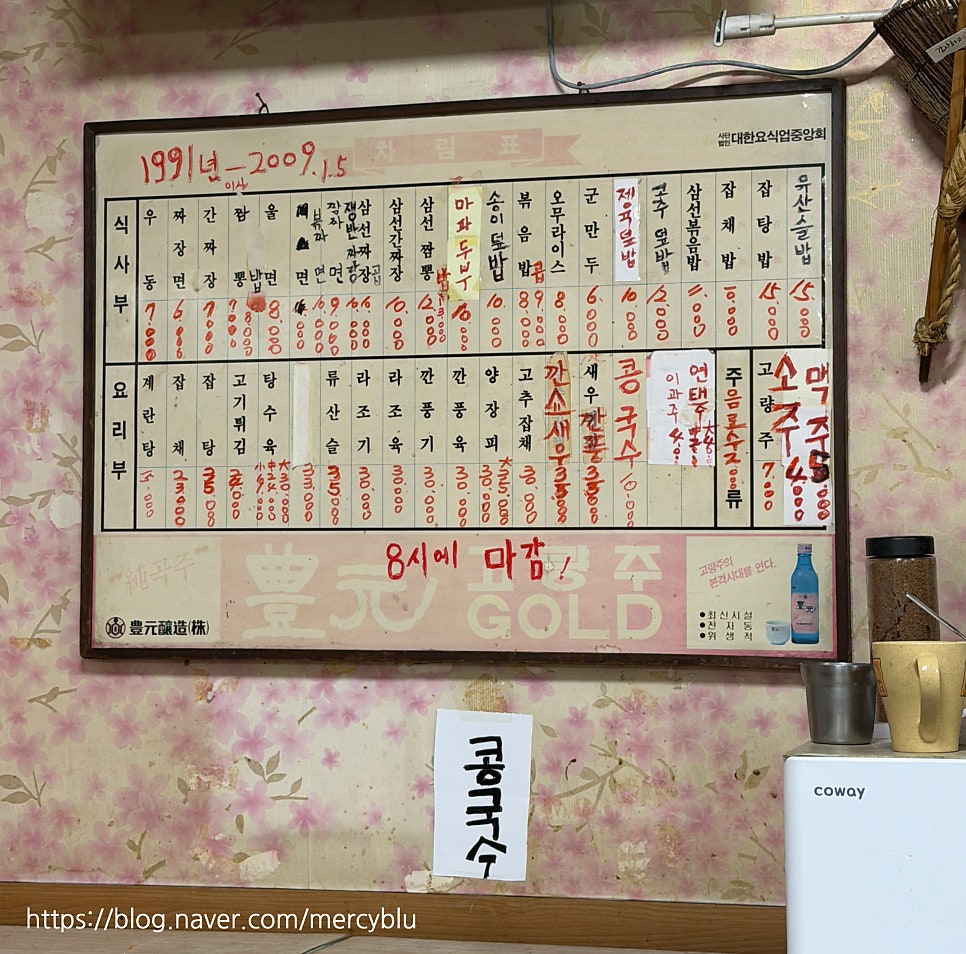 차림표
사단법인 대한요식업중앙회
1991년 - 2009.1.5
이상
식사부
우동 7000
짜장면 6000
간짜장 7000
짬뽕 7000
밥 8000
울면 8000
볶짜면
짬짜면
쟁반짜장
삼선짜장
곱
삼선간짜장 10.000
삼선짬뽕 12.000
밥 13.000
마파두부 10.000
송이덮밥 10.000
볶음밥 8.000
곱 9.000
오무라이스 8.000
군만두 6.000
제육덮밥 10.000
고추덮밥 12.000
삼선볶음밥 11.000
잡채밥 10.000
잡탕밥 15.000
유산슬밥 15.000
요리부
계란탕
잡채
잡탕
고기튀김
탕수육
小 中 大
류산슬 35.000
라조기 30.000
라조육 30.000
깐풍기 30.000
깐풍육 30.000
양장피 30.000
大
고추잡채 30.000
깐쇼새우 35.000
새우깐풍 35.000
콩국수 10.000
연태
이과주
음료수 2000
주류
고량주 7.000
소주 4000
맥주 5.000
8시에 마감!
豊元 고량주
GOLD
"純곡주"
豊元釀造(株)
고량주의
본격시대를 연다.
●최신시설
●전자동
●위생적
콩국수
coway
https://blog.naver.com/mercyblu